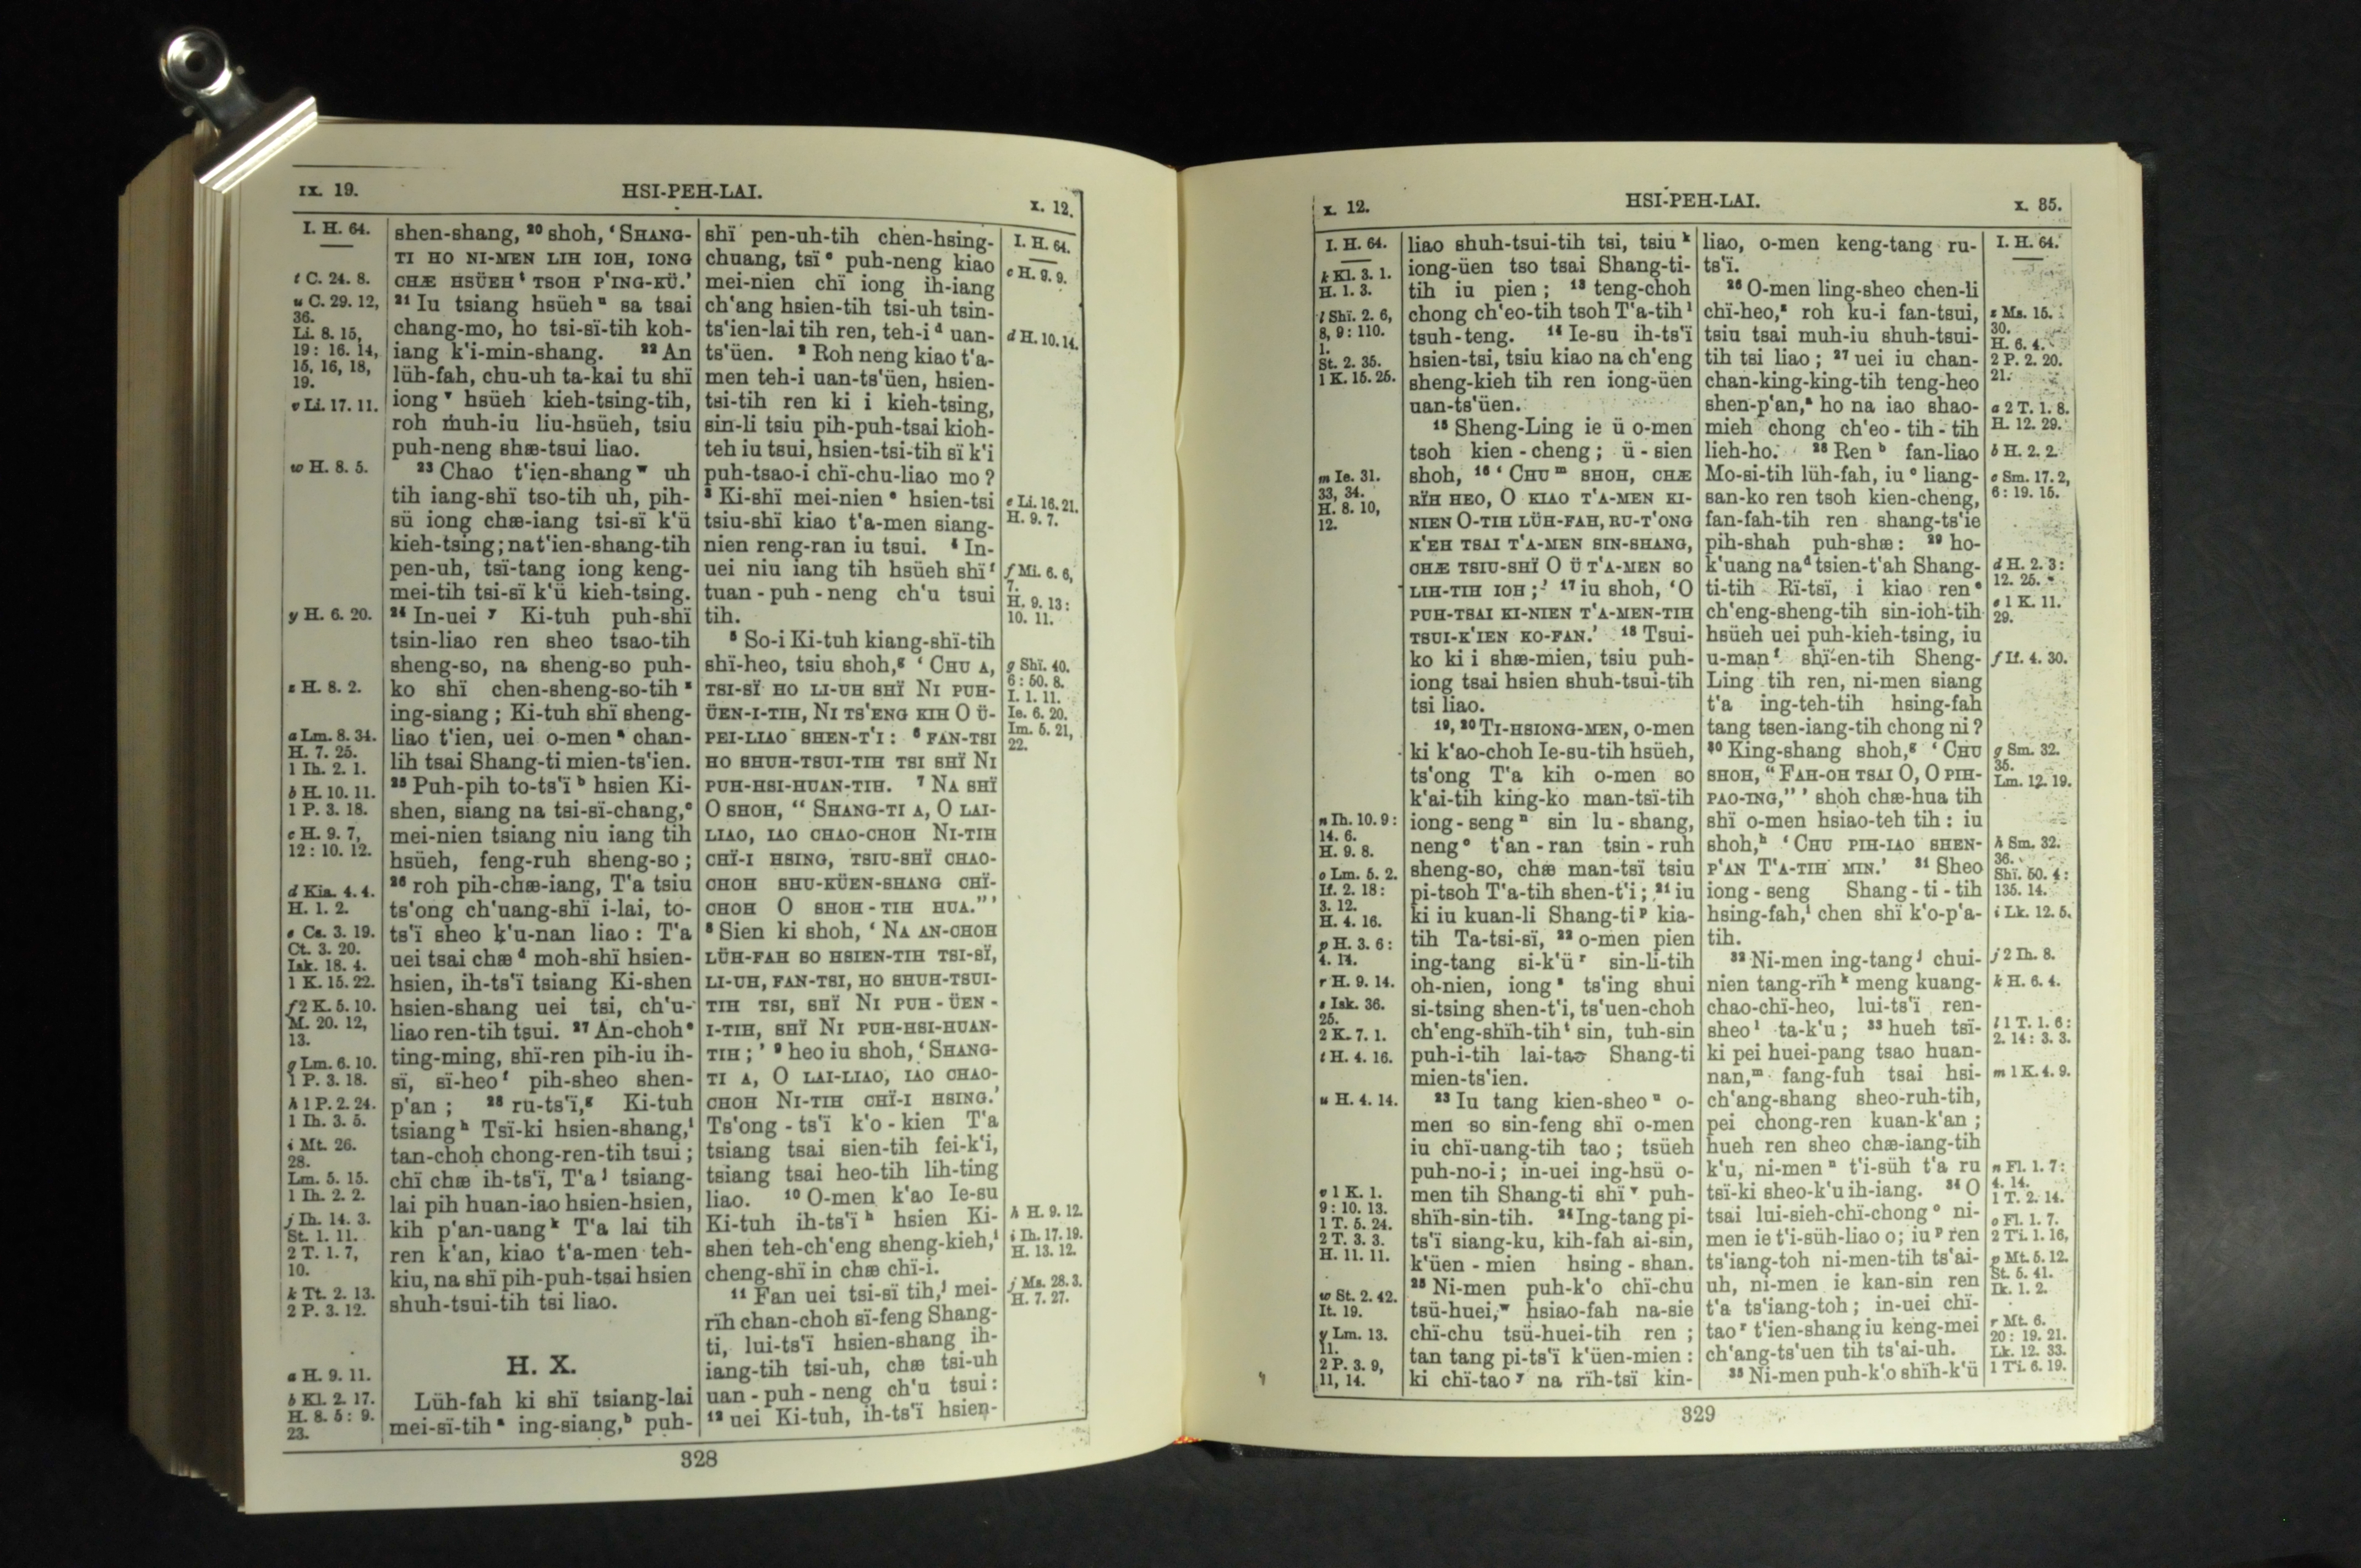 IX. 19.
HSI-PEH-LAI.
X. 12.
I. H. 64.
t C. 24. 8.
u C. 29. 12,
36.
Li. 8. 15,
19 : 16. 14,
15, 16, 18,
19.
v Li. 17. 11.
w H. 8. 5.
y H. 6. 20.
z H. 8. 2.
a Lm. 8. 34.
H. 7. 25.
1 Ih. 2. 1.
b H. 10. 11.
1 P. 3. 18.
c H. 9. 7,
12 : 10. 12.
d Kia. 4. 4.
H. 1. 2.
e Cs. 3. 19.
Ct. 3. 20.
Isk. 18. 4.
1 K. 15. 22.
f 2 K. 5. 10.
M. 20. 12,
13.
g Lm. 6. 10.
1 P. 3. 18.
h 1 P. 2. 24.
1 Ih. 3. 5.
i Mt. 26.
28.
Lm. 5. 15.
1 Ih. 2. 2.
j Ih. 14. 3.
St. 1. 11.
2 T. 1. 7,
10.
k Tt. 2. 13.
2 P. 3. 12.
a H. 9. 11.
b Kl. 2. 17.
H. 8. 5 : 9.
23.
shen-shang, 20 shoh, ‘SHANG-
TI HO NI-MEN LIH IOH, IONG
CHÆ HSÜEH t TSOH P‘ING-KÜ.’
21 Iu tsiang hsüeh u sa tsai
chang-mo, ho tsi-sï-tih koh-
iang k‘i-min-shang. 22 An
lüh-fah, chu-uh ta-kai tu shï
iong v hsüeh kieh-tsing-tih,
roh muh-iu liu-hsüeh, tsiu
puh-neng shæ-tsui liao.
23 Chao t‘ien-shang w uh
tih iang-shï tso-tih uh, pih-
sü iong chæ-iang tsi-sï k‘ü
kieh-tsing; na t‘ien-shang-tih
pen-uh, tsï-tang iong keng-
mei-tih tsi-sï k‘ü kieh-tsing.
24 In-uei y Ki-tuh puh-shï
tsin-liao ren sheo tsao-tih
sheng-so, na sheng-so puh-
ko shï chen-sheng-so-tih z
ing-siang; Ki-tuh shï sheng-
liao t‘ien, uei o-men a chan-
lih tsai Shang-ti mien-ts‘ien.
25 Puh-pih to-ts‘ï b hsien Ki-
shen, siang na tsi-sï-chang, c
mei-nien tsiang niu iang tih
hsüeh, feng-ruh sheng-so;
26 roh pih-chæ-iang, T‘a tsiu
ts‘ong ch‘uang-shï i-lai, to-
ts‘ï sheo k‘u-nan liao: T‘a
uei tsai chæ d moh-shï hsien-
hsien, ih-ts‘ï tsiang Ki-shen
hsien-shang uei tsi, ch‘u-
liao ren-tih tsui. 27 An-choh e
ting-ming, shï-ren pih-iu ih-
sï, sï-heo f pih-sheo shen-
p‘an; 28 ru-ts‘ï, g Ki-tuh
tsiang h Tsï-ki hsien-shang, i
tan-choh chong-ren-tih tsui;
chï chæ ih-ts‘ï, T‘a j tsiang-
lai pih huan-iao hsien-hsien,
kih p‘an-uang k T‘a lai tih
ren k‘an, kiao t‘a-men teh-
kiu, na shï pih-puh-tsai hsien
shuh-tsui-tih tsi liao.
H. X.
Lüh-fah ki shï tsiang-lai
mei-sï-tih a ing-siang, b puh-
shï pen-uh-tih chen-hsing-
chuang, tsï c puh-neng kiao
mei-nien chï iong ih-iang
ch‘ang hsien-tih tsi-uh tsin-
ts‘ien-lai tih ren, teh-i d uan-
ts‘üen. 2 Roh neng kiao t‘a-
men teh-i uan-ts‘üen, hsien-
tsi-tih ren ki i kieh-tsing,
sin-li tsiu pih-puh-tsai kioh-
teh iu tsui, hsien-tsi-tih sï k‘i
puh-tsao-i chï-chu-liao mo?
3 Ki-shï mei-nien e hsien-tsi
tsiu-shï kiao t‘a-men siang-
nien reng-ran iu tsui. 4 In-
uei niu iang tih hsüeh shï f
tuan-puh-neng ch‘u tsui
tih.
5 So-i Ki-tuh kiang-shï-tih
shï-heo, tsiu shoh, g ‘CHU A,
TSI-SÏ HO LI-UH SHÏ NI PUH-
ÜEN-I-TIH, NI TS‘ENG KIH O Ü-
PEI-LIAO SHEN-T‘I: 6 FAN-TSI
HO SHUH-TSUI-TIH TSI SHÏ NI
PUH-HSI-HUAN-TIH. 7 NA SHÏ
O SHOH, “SHANG-TI A, O LAI-
LIAO, IAO CHAO-CHOH NI-TIH
CHÏ-I HSING, TSIU-SHÏ CHAO-
CHOH SHU-KÜEN-SHANG CHÏ-
CHOH O SHOH-TIH HUA.”’
8 Sien ki shoh, ‘NA AN-CHOH
LÜH-FAH SO HSIEN-TIH TSI-SÏ,
LI-UH, FAN-TSI, HO SHUH-TSUI-
TIH TSI, SHÏ NI PUH-ÜEN-
I-TIH, SHÏ NI PUH-HSI-HUAN-
TIH;’ 9 heo iu shoh, ‘SHANG-
TI A, O LAI-LIAO, IAO CHAO-
CHOH NI-TIH CHÏ-I HSING.’
Ts‘ong-ts‘ï k‘o-kien T‘a
tsiang tsai sien-tih fei-k‘i,
tsiang tsai heo-tih lih-ting
liao. 10 O-men k‘ao Ie-su
Ki-tuh ih-ts‘ï h hsien Ki-
shen teh-ch‘eng sheng-kieh, i
cheng-shï in chæ chï-i.
11 Fan uei tsi-sï tih, j mei-
rïh chan-choh sï-feng Shang-
ti, lui-ts‘ï hsien-shang ih-
iang-tih tsi-uh, chæ tsi-uh
uan-puh-neng ch‘u tsui:
12 uei Ki-tuh, ih-ts‘ï hsien-
I. H. 64.
c H. 9. 9.
d H. 10. 14.
e Li. 16. 21.
H. 9. 7.
f Mi. 6. 6,
7.
H. 9. 13 :
10. 11.
g Shï. 40.
6 : 50. 8.
I. 1. 11.
Ie. 6. 20.
Im. 5. 21,
22.
h H. 9. 12.
i Ih. 17. 19.
H. 13. 12.
j Ms. 28. 3.
H. 7. 27.
328
X. 12.
HSI-PEH-LAI.
X. 35.
I. H. 64.
k Kl. 3. 1.
H. 1. 3.
l Shï. 2. 6,
8, 9 : 110.
1.
St. 2. 35.
1 K. 15. 25.
m Ie. 31.
33, 34.
H. 8. 10,
12.
n Ih. 10. 9 :
14. 6.
H. 9. 8.
o Lm. 5. 2.
If. 2. 18 :
3. 12.
H. 4. 16.
p H. 3. 6 :
4. 14.
r H. 9. 14.
s Isk. 36.
25.
2 K. 7. 1.
t H. 4. 16.
u H. 4. 14.
v 1 K. 1.
9 : 10. 13.
1 T. 5. 24.
2 T. 3. 3.
H. 11. 11.
w St. 2. 42.
It. 19.
y Lm. 13.
11.
2 P. 3. 9,
11, 14.
liao shuh-tsui-tih tsi, tsiu k
iong-üen tso tsai Shang-ti-
tih iu pien; 13 teng-choh
chong ch‘eo-tih tsoh T‘a-tih l
tsuh-teng. 14 Ie-su ih-ts‘ï
hsien-tsi, tsiu kiao na ch‘eng
sheng-kieh tih ren iong-üen
uan-ts‘üen.
15 Sheng-Ling ie ü o-men
tsoh kien-cheng; ü-sien
shoh, 16 ‘CHU m SHOH, CHÆ
RÏH HEO, O KIAO T‘A-MEN KI-
NIEN O-TIH LÜH-FAH, RU-T‘ONG
K‘EH TSAI T‘A-MEN SIN-SHANG,
CHÆ TSIU-SHÏ O Ü T‘A-MEN SO
LIH-TIH IOH;’ 17 iu shoh, ‘O
PUH-TSAI KI-NIEN T‘A-MEN-TIH
TSUI-K‘IEN KO-FAN.’ 18 Tsui-
ko ki i shæ-mien, tsiu puh-
iong tsai hsien shuh-tsui-tih
tsi liao.
19, 20 TI-HSIONG-MEN, o-men
ki k‘ao-choh Ie-su-tih hsüeh,
ts‘ong T‘a kih o-men so
k‘ai-tih king-ko man-tsï-tih
iong-seng n sin lu-shang,
neng o t‘an-ran tsin-ruh
sheng-so, chæ man-tsï tsiu
pi-tsoh T‘a-tih shen-t‘i; 21 iu
ki iu kuan-li Shang-ti p kia-
tih Ta-tsi-sï, 22 o-men pien
ing-tang si-k‘ü r sin-li-tih
oh-nien, iong s ts‘ing shui
si-tsing shen-t‘i, ts‘uen-choh
ch‘eng-shïh-tih t sin, tuh-sin
puh-i-tih lai-tao Shang-ti
mien-ts‘ien.
23 Iu tang kien-sheo u o-
men so sin-feng shï o-men
iu chï-uang-tih tao; tsüeh
puh-no-i; in-uei ing-hsü o-
men tih Shang-ti shï v puh-
shïh-sin-tih. 24 Ing-tang pi-
ts‘ï siang-ku, kih-fah ai-sin,
k‘üen-mien hsing-shan.
25 Ni-men puh-k‘o chï-chu
tsü-huei, w hsiao-fah na-sie
chï-chu tsü-huei-tih ren;
tan tang pi-ts‘ï k‘üen-mien:
ki chï-tao y na rïh-tsï kin-
liao, o-men keng-tang ru-
ts‘ï.
26 O-men ling-sheo chen-li
chï-heo, z roh ku-i fan-tsui,
tsiu tsai muh-iu shuh-tsui-
tih tsi liao; 27 uei iu chan-
chan-king-king-tih teng-heo
shen-p‘an, a ho na iao shao-
mieh chong ch‘eo-tih-tih
lieh-ho. 28 Ren b fan-liao
Mo-si-tih lüh-fah, iu c liang-
san-ko ren tsoh kien-cheng,
fan-fah-tih ren shang-ts‘ie
pih-shah puh-shæ: 29 ho-
k‘uang na d tsien-t‘ah Shang-
ti-tih Rï-tsï, i kiao ren e
ch‘eng-sheng-tih sin-ioh-tih
hsüeh uei puh-kieh-tsing, iu
u-man f shï-en-tih Sheng-
Ling tih ren, ni-men siang
t‘a ing-teh-tih hsing-fah
tang tsen-iang-tih chong ni?
30 King-shang shoh, g ‘CHU
SHOH, “FAH-OH TSAI O, O PIH-
PAO-ING,”’ shoh chæ-hua tih
shï o-men hsiao-teh tih: iu
shoh, h ‘CHU PIH-IAO SHEN-
P‘AN T‘A-TIH MIN.’ 31 Sheo
iong-seng Shang-ti-tih
hsing-fah, i chen shï k‘o-p‘a-
tih.
32 Ni-men ing-tang j chui-
nien tang-rïh k meng kuang-
chao-chï-heo, lui-ts‘ï ren-
sheo l ta-k‘u; 33 hueh tsï-
ki pei huei-pang tsao huan-
nan, m fang-fuh tsai hsi-
ch‘ang-shang sheo-ruh-tih,
pei chong-ren kuan-k‘an;
hueh ren sheo chæ-iang-tih
k‘u, ni-men n t‘i-süh t‘a ru
tsï-ki sheo-k‘u ih-iang. 34 O
tsai lui-sieh-chï-chong o ni-
men ie t‘i-süh-liao o; iu p ren
ts‘iang-toh ni-men-tih ts‘ai-
uh, ni-men ie kan-sin ren
t‘a ts‘iang-toh; in-uei chï-
tao r t‘ien-shang iu keng-mei
ch‘ang-ts‘uen tih ts‘ai-uh.
35 Ni-men puh-k‘o shïh-k‘ü
I. H. 64.
z Ms. 15.
30.
H. 6. 4.
2 P. 2. 20.
21.
a 2 T. 1. 8.
H. 12. 29.
b H. 2. 2.
c Sm. 17. 2,
6 : 19. 15.
d H. 2. 3 :
12. 25.
e 1 K. 11.
29.
f If. 4. 30.
g Sm. 32.
35.
Lm. 12. 19.
h Sm. 32.
36.
Shï. 50. 4 :
135. 14.
i Lk. 12. 5.
j 2 Ih. 8.
k H. 6. 4.
l 1 T. 1. 6 :
2. 14 : 3. 3.
m 1 K. 4. 9.
n Fl. 1. 7 :
4. 14.
1 T. 2. 14.
o Fl. 1. 7.
2 Ti. 1. 16,
p Mt. 5. 12.
St. 5. 41.
Ik. 1. 2.
r Mt. 6.
20 : 19. 21.
Lk. 12. 33.
1 Ti. 6. 19.
329